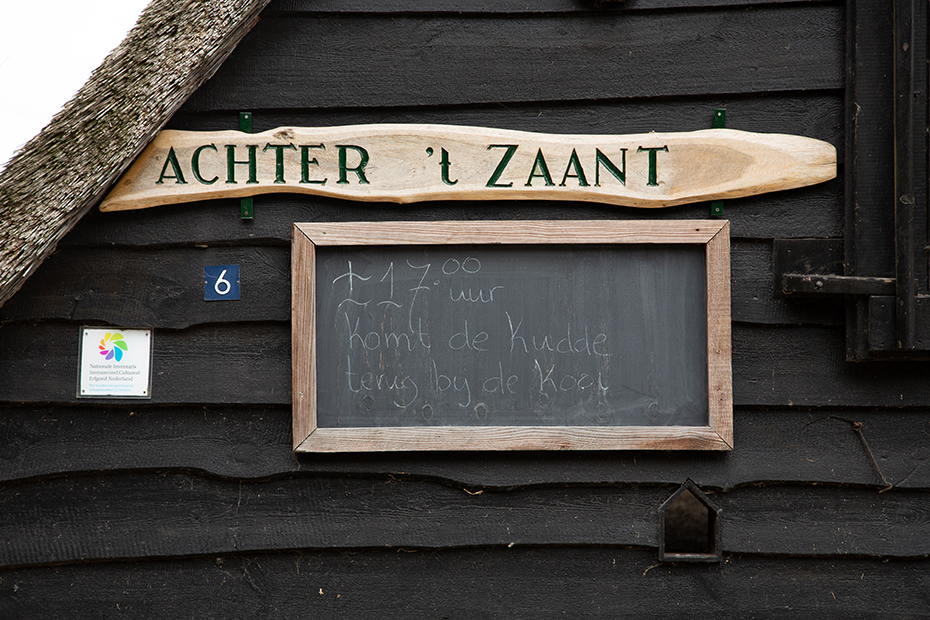 ACHTER 't ZAANT
6
± 17.00 uur
komt de kudde
terug by de Kooi
Nationale Inventaris
Immaterieel Cultureel
Erfgoed Nederland